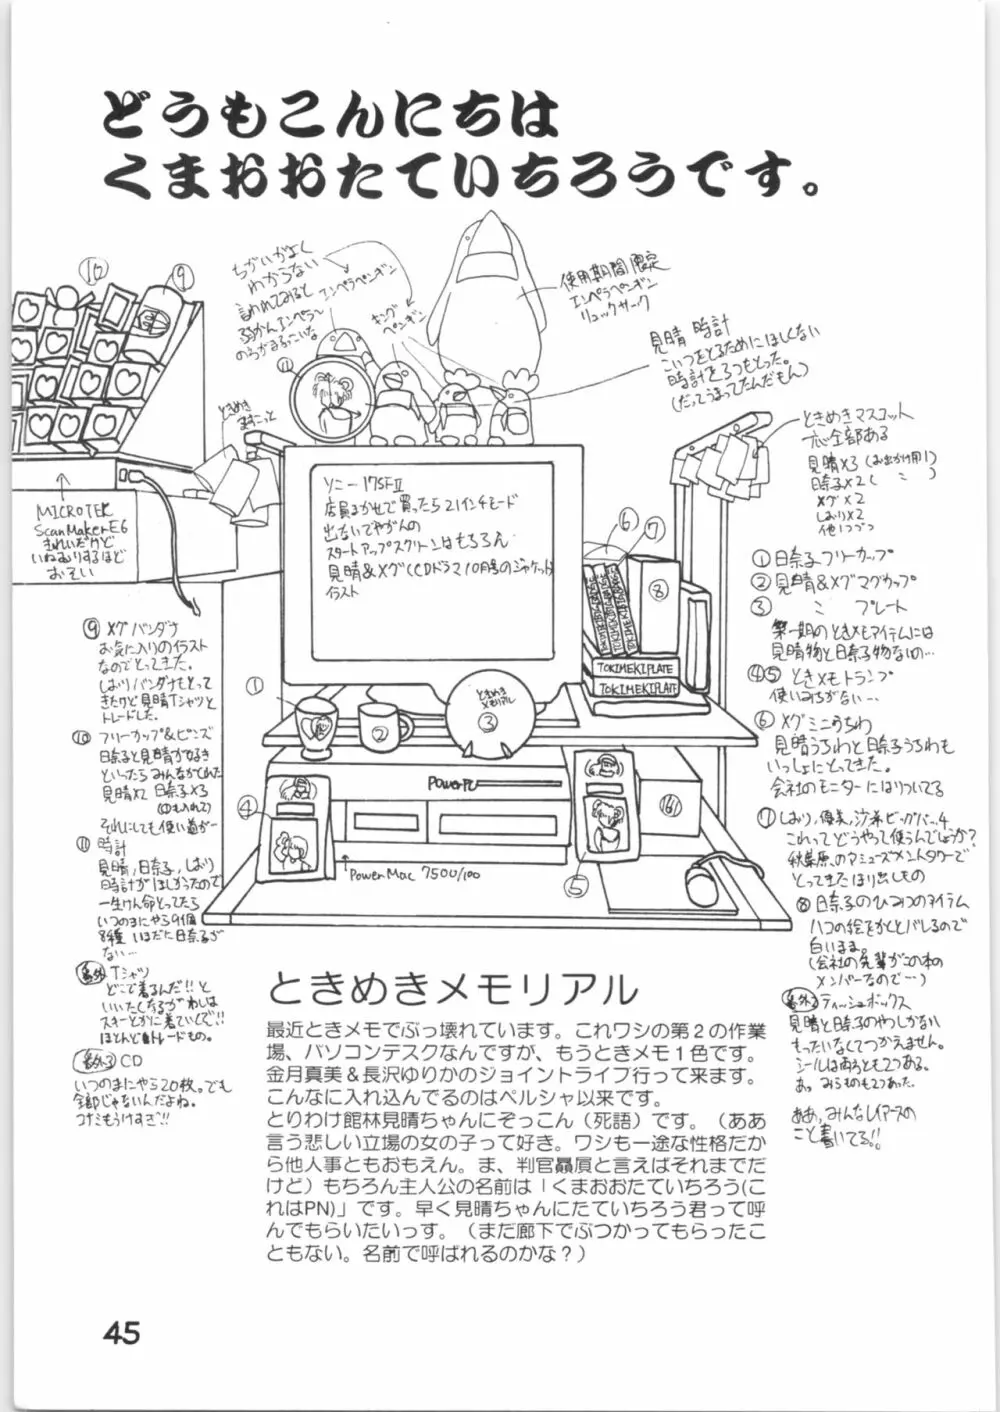 どうもこんにちは
くまおおたていちろうです。
ちがいがよく
わからない
言われてみると
エンペラペンギン
キング
ペンギン
使用期間限定
エンペラペンギン
リュックサーク
見晴時計
こいつをとるためにほしくない
時計を3つもとった。
(だってうまってたんだもん)
⑩
⑨
⑪
ときめき
ときめきマスコット
全部ある
見晴×3(お出かけ用1)
日奈子×2(〃)
メグ×2
しおり×2
他1つづつ
MICROTEK
ScanMakerE6
きれいだけど
いねむりするほど
おそい
ソニー17SFⅡ
店員まかせで買ったら21インチモード
出ないでやがんの
スタートアップスクリーンはもちろん
見晴&メグ(CDドラマ10月号のジャケット)
イラスト
⑥
⑦
⑧
TOKIMEKIPLATE
TOKIMEKIPLATE
①
②
ときめき
メモリアル
③
④
⑤
PowerPC
PowerMac 7500/100
⑨メグバンダナ
お気に入りのイラスト
なのでとってきた。
しおりバンダナもとって
きたけど見晴Tシャツと
トレードした。
⑩フリーカップ&ピンズ
日奈子と見晴が好き
といったらみんながくれた
見晴×2 日奈子×3
それにしても使い道が…
⑪時計
見晴,日奈子,しおり
時計がほしかったので
一生けん命とってたら
いつのまにやら9個
8種 いまだに日奈子が
ない…
番外 Tシャツ
どこで着るんだ!!と
いいたくなるがわしは
スキーとかに着ていくぞ!!
ほとんどトレードもの。
番外3 CD
いつのまにやら20枚。でも
全部じゃないんだよね。
コナミもうけすぎ!!
①日奈子フリーカップ
②見晴&メグマグカップ
③〃 プレート
第一期のときメモアイテムには
見晴物と日奈子物ないの…
④⑤ときメモトランプ
使いみちがない…
⑥メグミニうちわ
見晴うちわと日奈子うちわも
いっしょにとってきた。
会社のモニターにはりついてる
⑦しおり,優美,沙希ビッグバ…4
これってどうやって使うんでしょうか?
秋葉原のアミューズメントタワーで
とってきたほり出しもの
⑧日奈子のひみつのアイテム
ハコの絵をかくとバレるので
白いまま。
(会社の先輩がこの本の
メンバーなので…)
番外2 ティッシュボックス
見晴と日奈子のやつしかない
もったいなくてつかえません。
シールは両ろとも2つある。
あっ みらものも2つあった。
ああ,みんなレイアースの
こと書いてる!!
ときめきメモリアル
最近ときメモでぶっ壊れています。これワシの第2の作業
場、パソコンデスクなんですが、もうときメモ1色です。
金月真美&長沢ゆりかのジョイントライブ行って来ます。
こんなに入れ込んでるのはペルシャ以来です。
とりわけ館林見晴ちゃんにぞっこん(死語)です。(ああ
言う悲しい立場の女の子って好き。ワシも一途な性格だか
ら他人事ともおもえん。ま、判官贔屓と言えばそれまでだ
けど)もちろん主人公の名前は「くまおおたていちろう(こ
れはPN)」です。早く見晴ちゃんにたていちろう君って呼
んでもらいたいっす。(まだ廊下でぶつかってもらったこ
ともない。名前で呼ばれるのかな?)
45